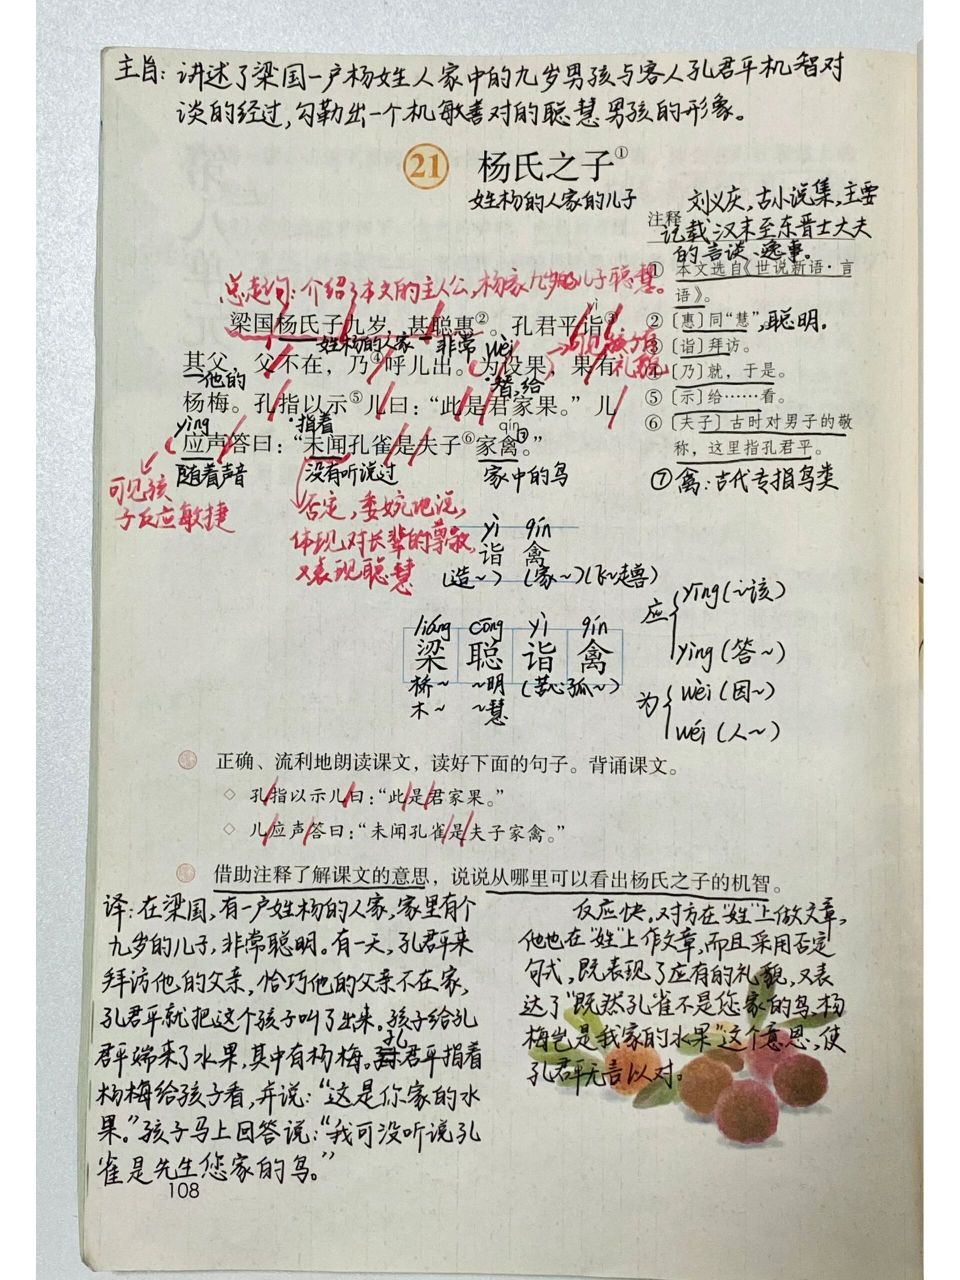 主旨：讲述了梁国一户杨姓人家中的九岁男孩与客人孔君平机智对
谈的经过，勾勒出一个机敏善对的聪慧男孩的形象。
21 杨氏之子①
姓杨的人家的儿子
刘义庆，古小说集，主要
记载汉末至东晋士大夫
的言谈、逸事。
注释
① 本文选自《世说新语·言
语》。
② 〔惠〕同“慧”，聪明。
③ 〔诣〕拜访。
④ 〔乃〕就，于是。
⑤ 〔示〕给……看。
⑥ 〔夫子〕古时对男子的敬
称，这里指孔君平。
⑦禽：古代专指鸟类
总起句：介绍了本文的主人公，杨家九岁的儿子聪慧。
yì
梁国杨氏子九岁，甚聪惠②。孔君平诣③
姓杨的人家 非常 wèi 可见孩子有礼貌
其父，父不在，乃④呼儿出。为设果，果有
他的 替，给
杨梅。孔指以示⑤儿曰：“此是君家果。”儿
yìng 指着 qín
应声答曰：“未闻孔雀是夫子⑥家禽。”
随着声音 没有听说过 家中的鸟
可见孩
子反应敏捷
否定，委婉地说，
体现对长辈的尊敬，
又表现聪慧
yì qín
诣 禽
（造～）（家～）（飞～走兽）
liáng cōng yì qín
梁 聪 诣 禽
桥～ ～明 （苦心孤～）
木～ ～慧
应 yīng（～该）
yìng（答～）
为 wèi（因～）
wéi（人～）
正确、流利地朗读课文，读好下面的句子。背诵课文。
◇ 孔/指以示儿/曰：“此/是/君家果。”
◇ 儿/应声/答曰：“未闻孔雀/是/夫子家禽。”
借助注释了解课文的意思，说说从哪里可以看出杨氏之子的机智。
译：在梁国，有一户姓杨的人家，家里有个
九岁的儿子，非常聪明。有一天，孔君平来
拜访他的父亲，恰巧他的父亲不在家，
孔君平就把这个孩子叫了出来。孩子给孔
君平端来了水果，其中有杨梅。孔君平指着
杨梅给孩子看，并说：“这是你家的水
果。”孩子马上回答说：“我可没听说孔
雀是先生您家的鸟。”
反应快。对方在“姓”上做文章，
他也在“姓”上作文章，而且采用否定
句式，既表现了应有的礼貌，又表
达了“既然孔雀不是您家的鸟，杨
梅岂是我家的水果”这个意思，使
孔君平无言以对。
108